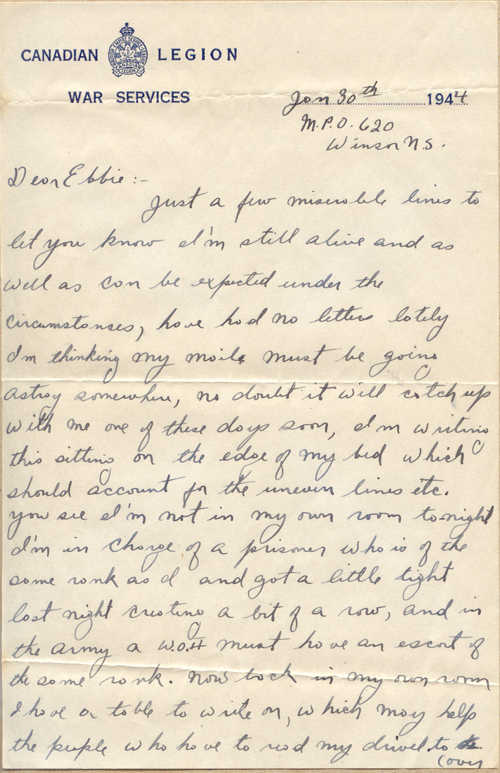 CANADIAN LEGION
WAR SERVICES
Jan 30th 1944
M.P.O. 620
Winsor N.S.
Dear Ebbie:-
Just a few miserable lines to
let you know I'm still alive and as
well as can be expected under the
circumstanses, have had no letters lately
I'm thinking my mail must be going
astray somewhere, no doubt it will catch up
with me one of these days soon, I'm writing
this sitting on the edge of my bed which
should account for the uneven lines etc.
you see I'm not in my own room toonight
I'm in charge of a prisoner who is of the
same rank as I and got a little tight
last night creating a bit of a row, and in
the army a W.O.II must have an escort of
the same rank. Now back in my own room
I have a table to write on, which may help
the people who have to read my drivel to
(over